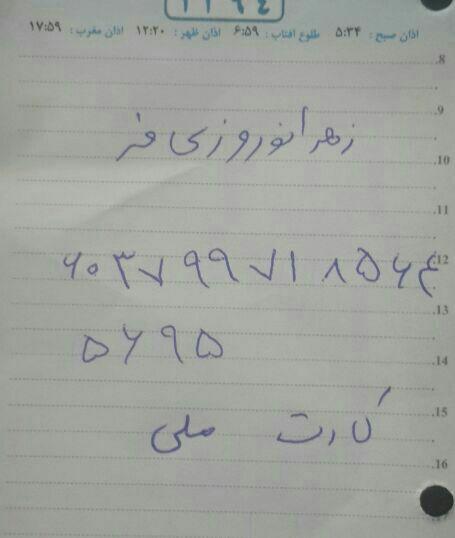 اذان صبح: ۵:۳۴ طلوع آفتاب: ۶:۵۹ اذان ظهر: ۱۲:۲۰ اذان مغرب: ۱۷:۵۹
.8
.9
زهرا نوروزی فر
.10
.11
۶۰۳۷ ۹۹۷۱ ۸۵۶۴
.12
.13
۵۶۹۵
.14
.15
کارت ملی
.16